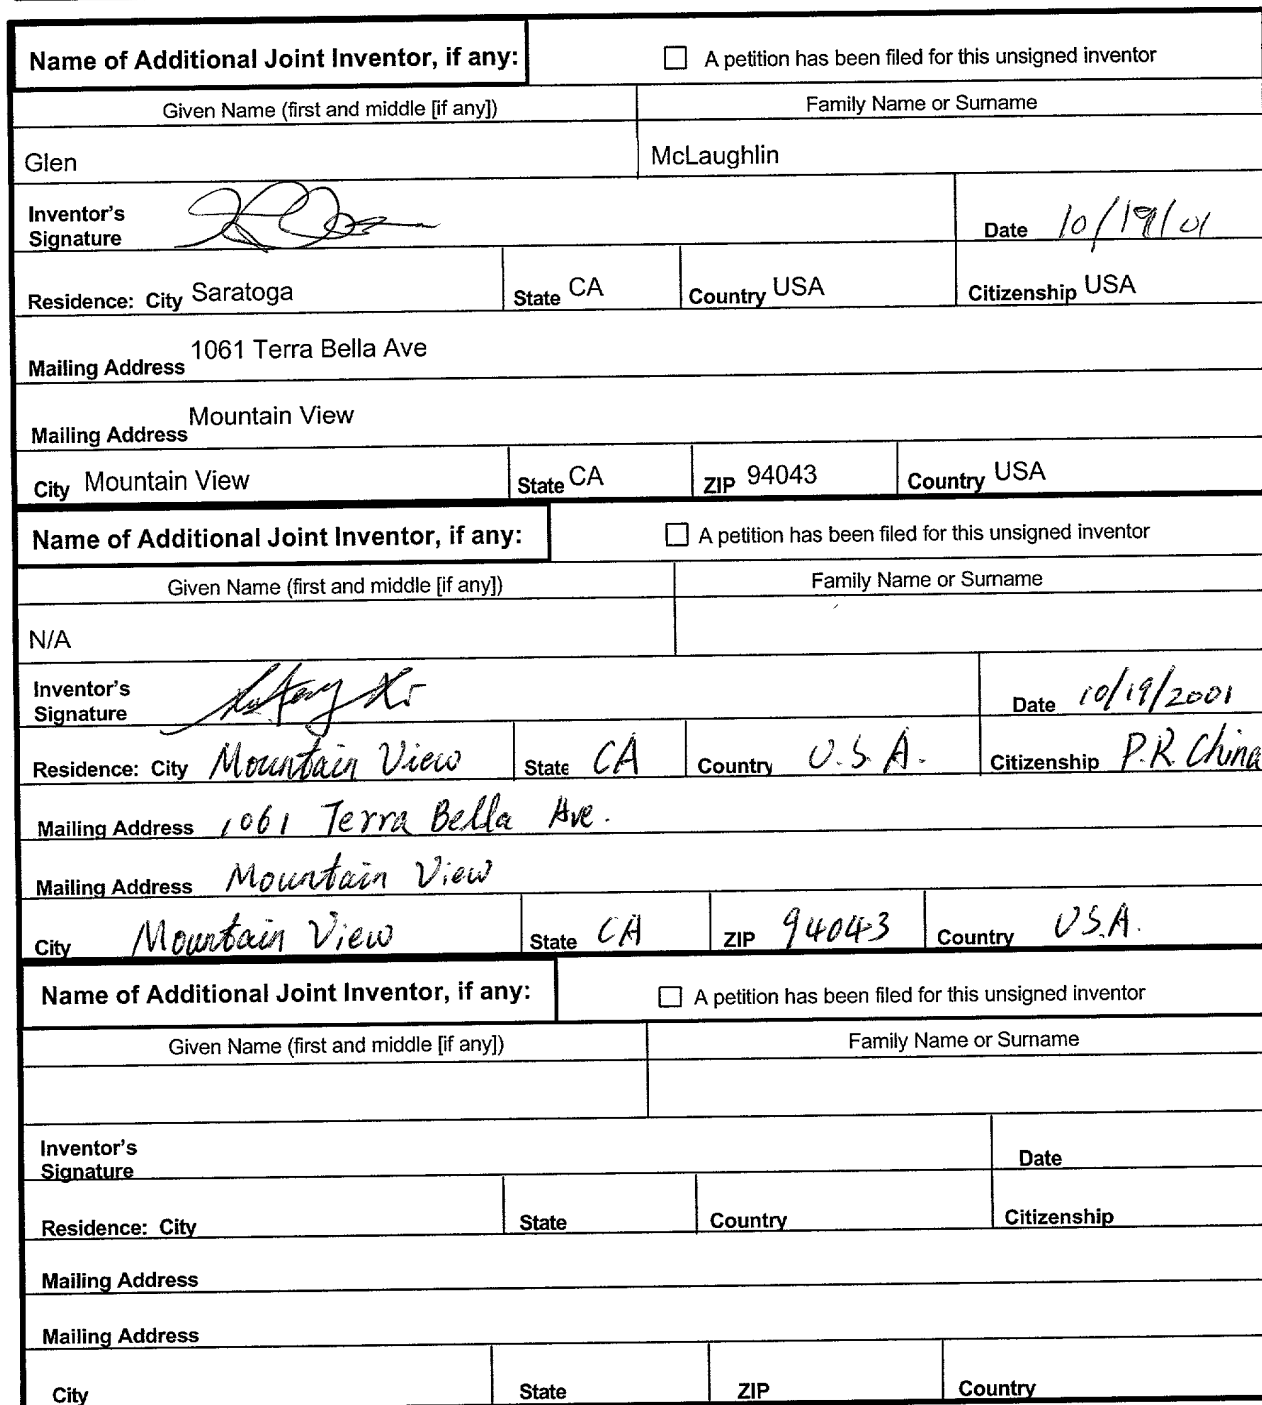 Name of Additional Joint Inventor, if any: A petition has been filed for this unsigned inventor
Given Name (first and middle [if any]) Family Name or Surname
Glen McLaughlin
Inventor's
Signature Date 10/19/01
Residence: City Saratoga State CA Country USA Citizenship USA
Mailing Address 1061 Terra Bella Ave
Mailing Address Mountain View
City Mountain View State CA ZIP 94043 Country USA
Name of Additional Joint Inventor, if any: A petition has been filed for this unsigned inventor
Given Name (first and middle [if any]) Family Name or Surname
N/A
Inventor's
Signature Date 10/19/2001
Residence: City Mountain View State CA Country U.S.A. Citizenship P.R. China
Mailing Address 1061 Terra Bella Ave.
Mailing Address Mountain View
City Mountain View State CA ZIP 94043 Country U.S.A.
Name of Additional Joint Inventor, if any: A petition has been filed for this unsigned inventor
Given Name (first and middle [if any]) Family Name or Surname
Inventor's
Signature Date
Residence: City State Country Citizenship
Mailing Address
Mailing Address
City State ZIP Country